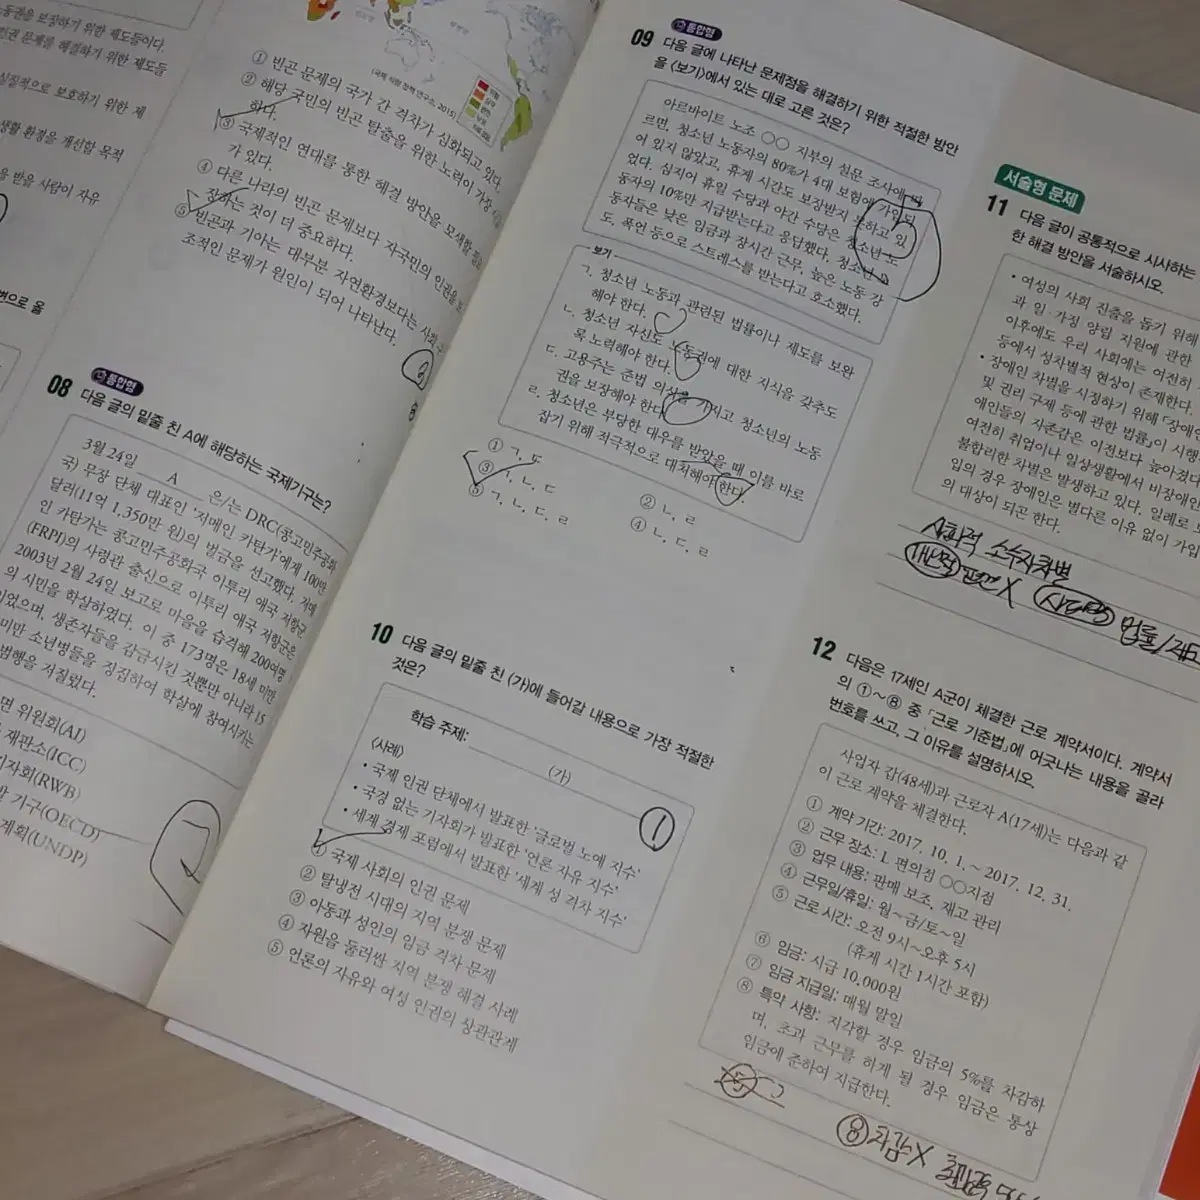 동권을 보장하기 위한 제도들이다.
권 문제를 해결하기 위한 제도들
실질적으로 보호하기 위한 제
생활 환경을 개선할 목적
을 받을 사람이 자유
(국제 식량 정책 연구소, 2015)
① 빈곤 문제의 국가 간 격차가 심화되고 있다.
② 해당 국민의 빈곤 탈출을 위한 노력이 가장
하다.
③ 국제적인 연대를 통한 해결 방안을 모색할
가 있다.
④ 다른 나라의 빈곤 문제보다 자국민의 인권을
장하는 것이 더 중요하다.
⑤ 빈곤과 기아는 대부분 자연환경보다는 사회
조적인 문제가 원인이 되어 나타난다.
②
통합형
08 다음 글의 밑줄 친 A에 해당하는 국제기구는?
3월 24일 A 은/는 DRC(콩고민주공화
국) 무장 단체 대표인 '저메인 카탄가'에게 100만
달러(11억 1,350만 원)의 벌금을 선고했다. 저메
인 카탄가는 콩고민주공화국 이투리 애국 저항군
(FRPI)의 사령관 출신으로 이투리 애국 저항군은
2003년 2월 24일 보고로 마을을 습격해 200여명
의 시민을 학살하였다. 이 중 173명은 18세 미만
이었으며, 생존자들을 감금시킨 것뿐만 아니라 15
미만 소년병들을 징집하여 학살에 참여시키는
범행을 저질렀다.
면 위원회(AI)
재판소(ICC)
기자회(RWB)
발 기구(OECD)
계획(UNDP)
통합형
09 다음 글에 나타난 문제점을 해결하기 위한 적절한 방안
을 〈보기〉에서 있는 대로 고른 것은?
아르바이트 노조 ○○ 지부의 설문 조사에 따
르면, 청소년 노동자의 80%가 4대 보험에 가입되
어 있지 않았고, 휴게 시간도 보장받지 못하고 있
었다. 심지어 휴일 수당과 야간 수당은 청소년 노
동자의 10%만 지급받는다고 응답했다. 청소년 노
동자들은 낮은 임금과 장시간 근무, 높은 노동 강
도, 폭언 등으로 스트레스를 받는다고 호소했다.
보기
ㄱ. 청소년 노동과 관련된 법률이나 제도를 보완
해야 한다.
ㄴ. 청소년 자신도 노동권에 대한 지식을 갖추도
록 노력해야 한다.
ㄷ. 고용주는 준법 의식을 가지고 청소년의 노동
권을 보장해야 한다.
ㄹ. 청소년은 부당한 대우를 받았을 때 이를 바로
잡기 위해 적극적으로 대처해야 한다.
① ㄱ, ㄷ
② ㄴ, ㄹ
③ ㄱ, ㄴ, ㄷ
④ ㄴ, ㄷ, ㄹ
⑤ ㄱ, ㄴ, ㄷ, ㄹ
10 다음 글의 밑줄 친 (가)에 들어갈 내용으로 가장 적절한
것은?
학습 주제: (가)
〈사례〉
• 국제 인권 단체에서 발표한 '글로벌 노예 지수'
• 국경 없는 기자회가 발표한 '언론 자유 지수'
• 세계 경제 포럼에서 발표한 '세계 성 격차 지수'
①
① 국제 사회의 인권 문제
② 탈냉전 시대의 지역 분쟁 문제
③ 아동과 성인의 임금 격차 문제
④ 자원을 둘러싼 지역 분쟁 해결 사례
⑤ 언론의 자유와 여성 인권의 상관관계
서술형 문제
11 다음 글이 공통적으로 시사하는
한 해결 방안을 서술하시오.
• 여성의 사회 진출을 돕기 위해
과 일·가정 양립 지원에 관한
이후에도 우리 사회에는 여전히
등에서 성차별적 현상이 존재한다.
• 장애인 차별을 시정하기 위해 「장애인
및 권리 구제 등에 관한 법률」이 시행
애인들의 자존감은 이전보다 높아졌다
여전히 취업이나 일상생활에서 비장애인
불합리한 차별은 발생하고 있다. 일례로
입의 경우 장애인은 별다른 이유 없이 가입
의 대상이 되곤 한다.
사회적 소수자차별
개인적 편견X 사회적 법률/제도
12 다음은 17세인 A군이 체결한 근로 계약서이다. 계약서
의 ①~⑧ 중 「근로 기준법」에 어긋나는 내용을 골라
번호를 쓰고, 그 이유를 설명하시오.
사업자 갑(48세)과 근로자 A(17세)는 다음과 같
이 근로 계약을 체결한다.
① 계약 기간: 2017. 10. 1. ~ 2017. 12. 31.
② 근무 장소: L 편의점 ○○지점
③ 업무 내용: 판매 보조, 재고 관리
④ 근무일/휴일: 월~금/토~일
⑤ 근로 시간: 오전 9시~오후 5시
(휴게 시간 1시간 포함)
⑥ 임금: 시급 10,000원
⑦ 임금 지급일: 매월 말일
⑧ 특약 사항: 지각할 경우 임금의 5%를 차감하
며, 초과 근무를 하게 될 경우 임금은 통상
임금에 준하여 지급한다.
⑤
⑧ 차감X